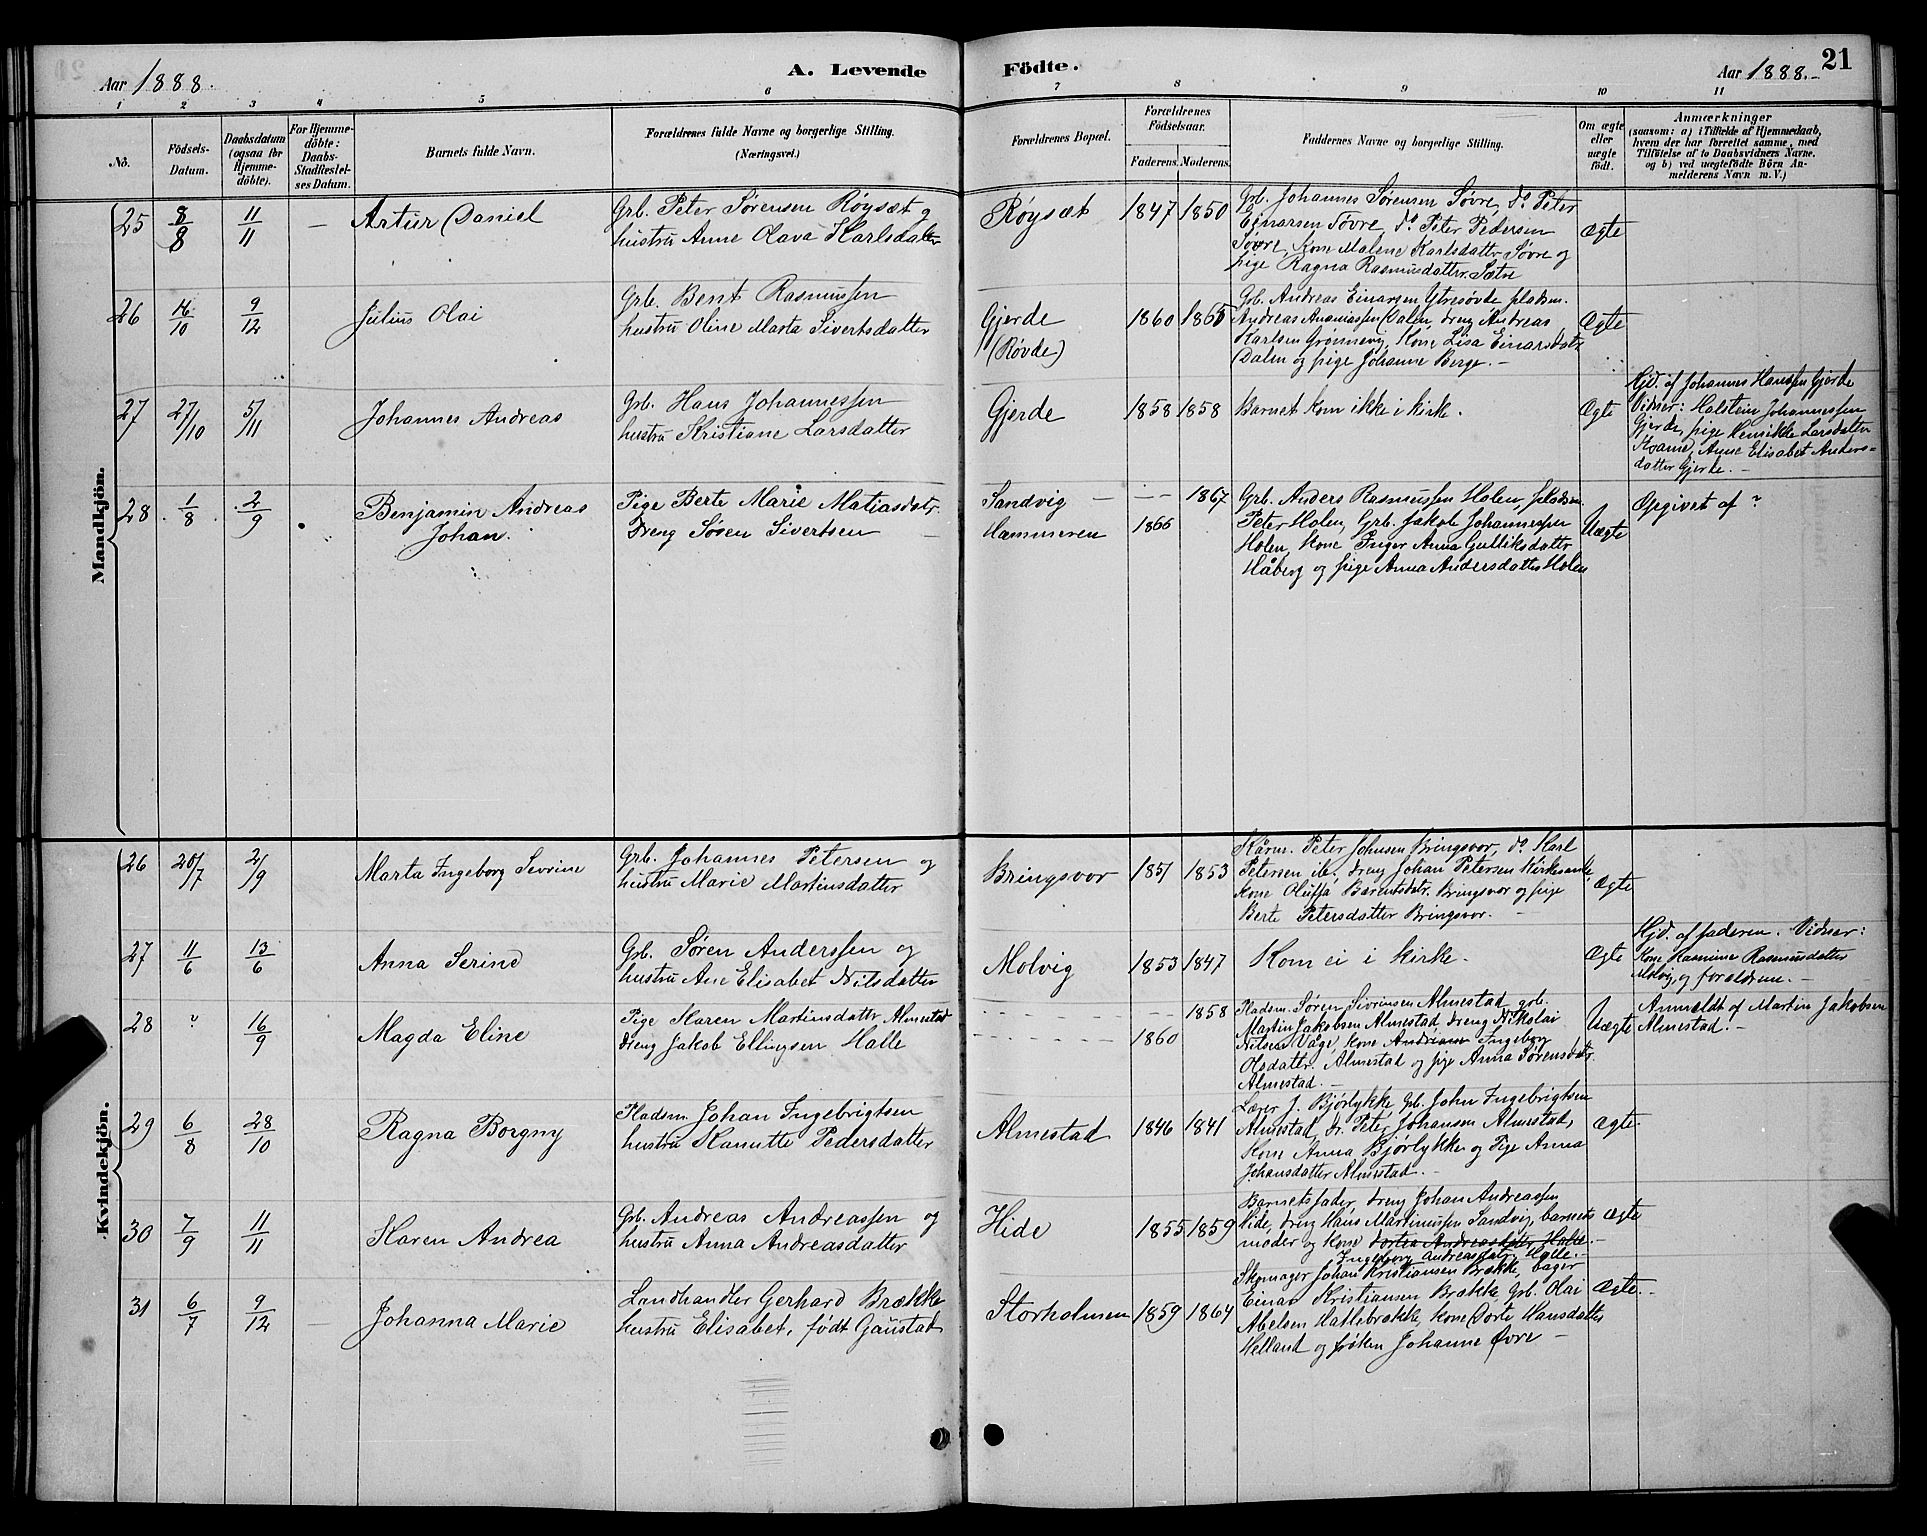 Aar 1888.
A. Levende
Födte.
Aar 1888.
21
1 2 3 4 5 6 7 8 9 10 11
No.
Födsels-
Datum.
Daabsdatum
(ogsaa for
Hjemme-
döbte).
For Hjemme-
döbte:
Daabs-
Stadfæstel-
ses Datum.
Barnets fulde Navn.
Forældrenes fulde Navne og borgerlige Stilling.
(Næringsvei.)
Forældrenes Bopæl.
Forældrenes
Födselsaar.
Faderens. Moderens.
Faddernes Navne og borgerlige Stilling.
Om ægte
eller
uægte
født.
Anmærkninger
(saasom: a) i Tilfælde af Hjemmedaab,
hvem der har forrettet samme, med
Tilföielse af to Daabsvidners Navne,
og b) ved uægtefödte Börn An-
melderens Navn m. V.)
Mandkjön.
25 8/8 11/11 — Artur Daniel
Grb. Peter Sørensen Røysæt og
hustru Anne Olava Karlsdatter
Røysæt 1847 1850
Grb. Johannes Sørensen Søvre, do Peter
Einarsen Søvre, do Peter Pedersen
Søvre, Kone Malene Karlsdatter Søvre og
pige Ragna Rasmusdatter Sætre
Ægte
26 16/10 9/12 Julius Olai
Grb. Bent Rasmussen
hustru Oline Marta Sivertsdatter
Gjerde
(Røvde)
1860 1865
Grb. Andreas Einarsen Ytresøvde pladsm.
Andreas Ananiassen Dalen, dreng Andreas
Karlsen Grønnevig, Kone Lisa Einarsdatr
Dalen og pige Johanne Berge. —
Ægte
27 27/10 5/11 Johannes Andreas
Grb. Hans Johannessen
hustru Kristiane Larsdatter
Gjerde 1858 1858 Barnet kom ikke i kirke. Ægte
Hjd. af Johannes Hanssen Gjerde
Vidner: Halstein Johannessen
Gjerde, pige Henrikke Larsdatter
Kvame, Anne Elisabet Anders-
datter Gjerde. —
28 1/8 2/9 Benjamin Andreas
Johan.
Pige Berte Marie Matiasdatr.
Dreng Søren Sivertsen —
Sandvig — — — 1867
Hammeren 1866
Grb. Anders Rasmussen Holen, pladsm.
Peter Holen, Grb. Jakob Johannessen
Holen, Kone Inger Anna Gulliksdatter
Håberg og pige Anna Andersdatter Holen
Uægte
Opgivet af ?
Kvindekjön.
26 20/7 2/9 Marta Ingeborg Sevrine
Grb. Johannes Petersen og
hustru Marie Martinsdatter
Bringsvor 1851 1853
Kårm. Peter Johnsen Bringsvor, do Karl
Petersen ib. dreng Johan Petersen Kirkesande,
Kone Oluffa Barentsdatr. Bringsvor og pige
Berte Petersdatter Bringsvor. —
Ægte
27 11/6 13/6 Anna Serine
Grb. Søren Anderssen og
hustru Ane Elisabet Nilsdatter
Molvig 1853 1847 Kom ei i kirke. Ægte
Hjd. af faderen. Vidner:
Kone Rasmine Rasmusdatter
Molvig, og forældrene. —
28 ? 16/9 Magda Eline
Pige Karen Martinsdattr Almestad
Dreng Jakob Ellingsen Halle
1858
1860
Pladsm. Søren Sivrinsen Almestad, grb.
Martin Jakobsen Almestad, dreng Nikolai
Nilsen Våge, kone Andriane Ingeborg
Olsdatter Almestad og pige Anna Sørensdatr.
Almestad. —
Uægte
Anmeldt af Martin Jakobsen
Almestad. —
29 6/8 28/10 Ragna Borgny
Pladsm. Johan Ingebrigtsen
hustru Hanutte Pedersdatter
Almestad 1846 1841
Lærer J. Bjørlykke, Grb. John Ingebrigtsen
Almestad, dr. Peter Johansen Almestad,
Kone Anna Bjørlykke og Pige Anna
Johansdatter Almestad. —
Ægte.
30 7/9 11/11 Karen Andrea
Grb. Andreas Andreassen og
hustru Anna Andreasdatter
Hide 1855 1859
Barnets fader, dreng Johan Andreassen
Hide, dreng Hans Martinussen Sandvig, barnets
moder og kone Dortea Andreasdatter Halle. —
Ingeborg Andreasdatr. Halle. —
Ægte
31 6/7 9/12 — Johanna Marie
Landhandler Gerhard Brække
hustru Elisabet, født Gaustad
Storholmen 1859 1864
Skomager Johan Kristiansen Brække, bager
Einar Kristiansen Brække, Grb. Olai
Abelsen Hatlebrække, kone Dorte Hansdatter
Helland og frøken Johanne Øvre —
Ægte. —